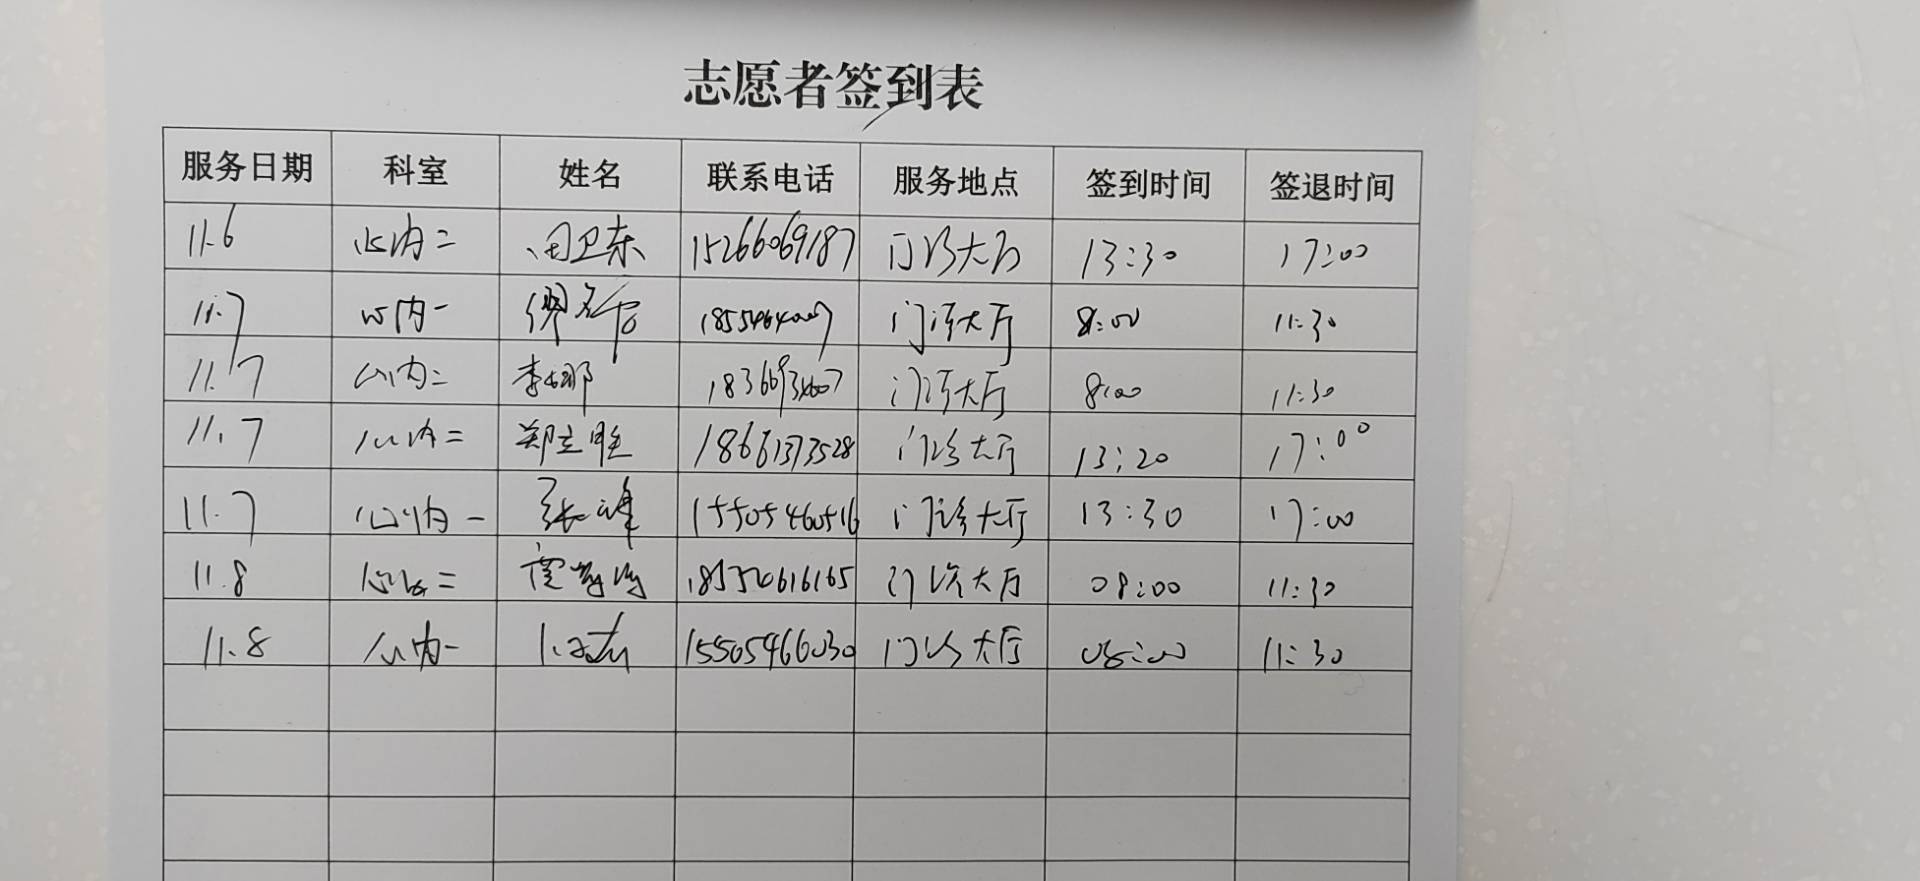 志愿者签到表
服务日期 科室 姓名 联系电话 服务地点 签到时间 签退时间
11.6 心内二 田卫东 15266069187 门诊大厅 13:30 17:00
11.7 心内一 门诊大厅 8:00 11:30
11.7 心内二 李娜 门诊大厅 8:00 11:30
11.7 心内二 郑立胜 18661373528 门诊大厅 13:20 17:00
11.7 心内一 张峰 15505460516 门诊大厅 13:30 17:00
11.8 心内二 门诊大厅 08:00 11:30
11.8 心内一 15505466030 门诊大厅 08:00 11:30